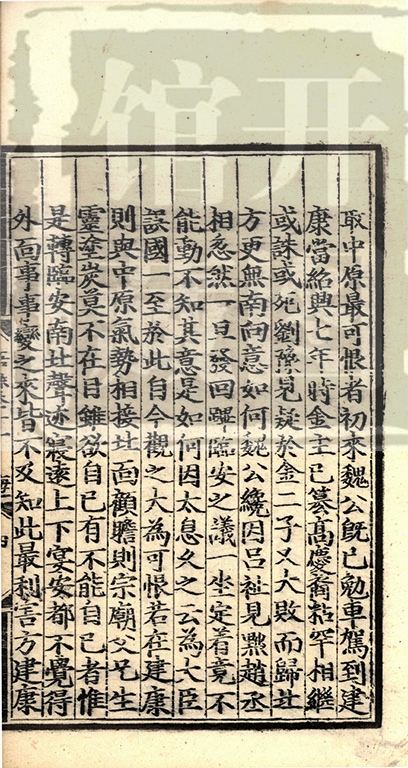 取中原最可恨者初來魏公旣已勉車駕到建
康當紹興七年時金主已簒高慶裔粘罕相繼
或誅或死劉豫見疑於金二子又大敗而歸北
方更無南向意如何魏公纔因呂祉見黜趙丞
相忽然一旦發回蹕臨安之議一坐定着竟不
能動不知其意是如何因太息久之云爲大臣
誤國一至於此自今觀之大為可恨若在建康
則與中原氣勢相接北面顧瞻則宗廟父兄生
靈塗炭莫不在目雖欲自已有不能自已者惟
是轉臨安南北聲迹寖遠上下宴安都不覺得
外面事事變之來皆不及知此最利害方建康
開館